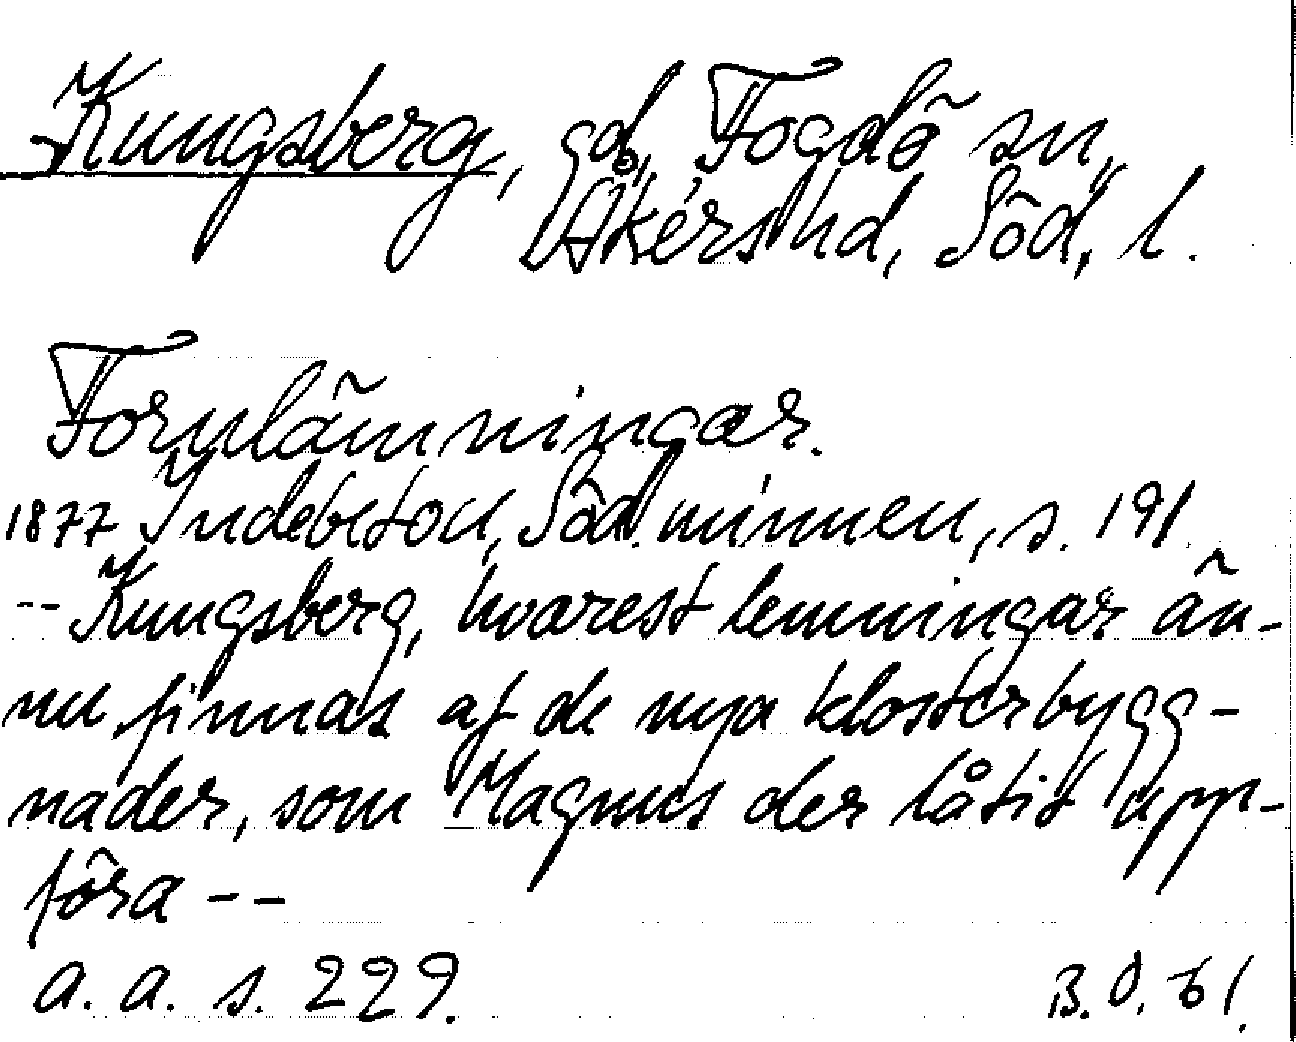 Kungsberg, gd, Fogdö sn,
Åkers hd, Söd, l.
Fornlämningar.
1877 Indebetou, Söd. minnen, s. 191.
-- Kungsberg, hvarest lemningar än-
nu finnas af de nya klosterbygg-
nader, som Magnus der låtit upp-
föra --
a. a. s. 229.
B. O. 61.